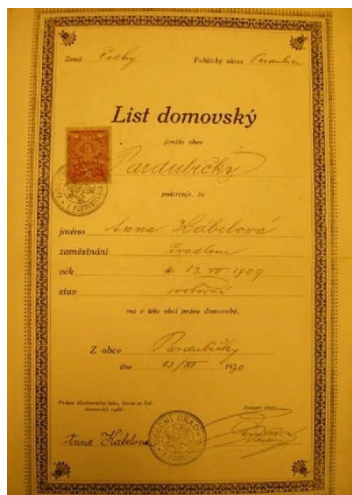 Země Čechy Politický okres Pardubice
List domovský
jímžto obec
Pardubičky
potvrzuje, že
jméno Anna Kábelová
zaměstnání švadlena
věk n. 13. VII. 1909
stav svobodná
má v této obci právo domovské.
Z obce Pardubičky
dne 13/XI 1930
Podpis
domovský vydá:
Anna Kábelová
OBECNÍ ÚŘAD